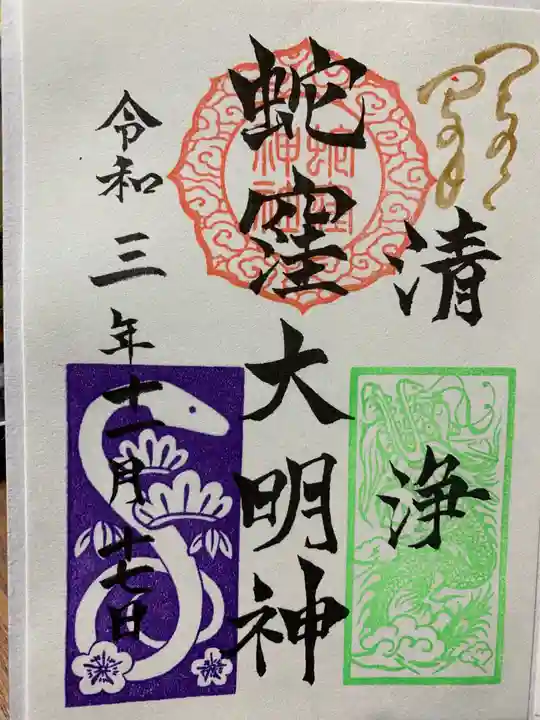 清浄
蛇窪大明神
蛇窪神社
令和三年十一月十七日